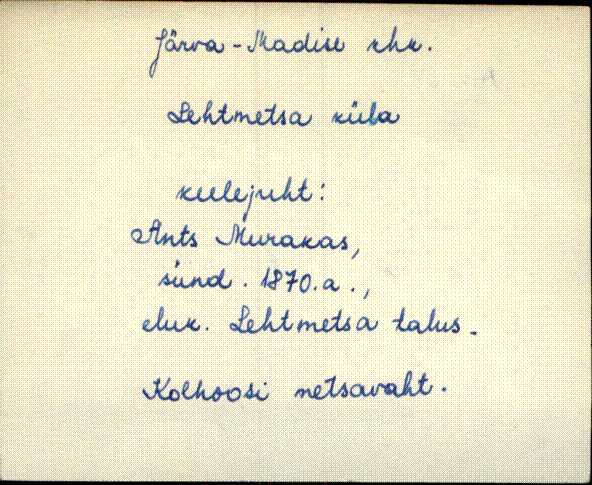 Järva-Madise khk.
Lehtmetsa küla
keelejuht:
Ants Murakas,
sünd. 1870.a.,
eluk. Lehtmetsa talus.
Kolhoosi metsavaht.